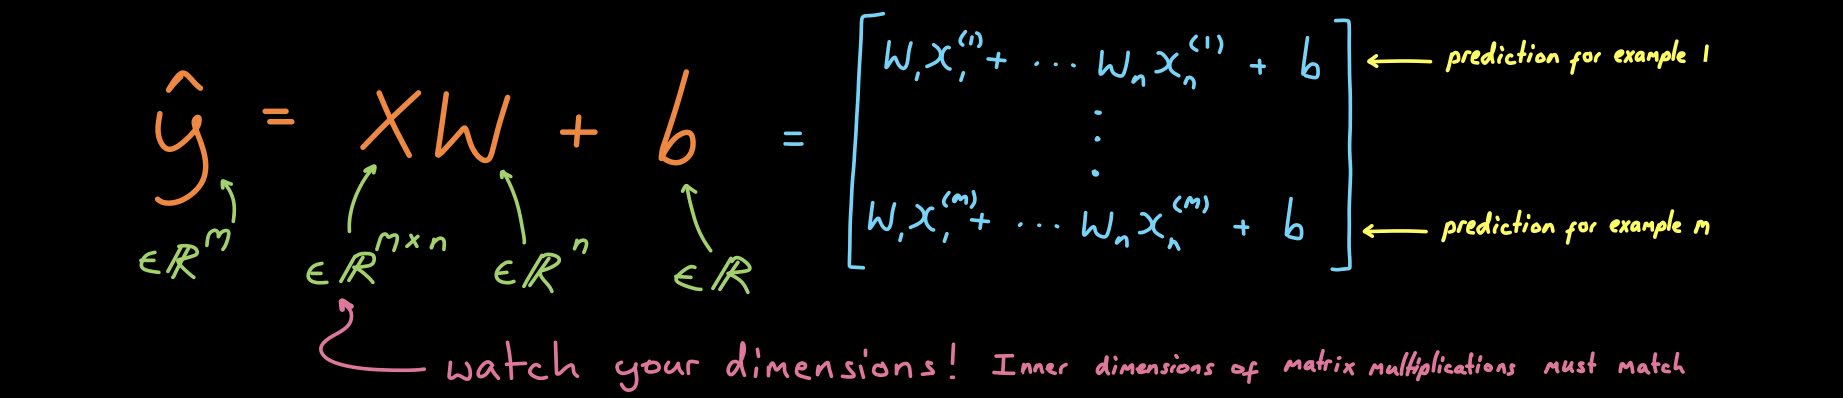 ŷ = XW + b = [ W₁x₁⁽¹⁾ + ⋯ Wₙxₙ⁽¹⁾ + b ← prediction for example 1
⋮
W₁x₁⁽ᵐ⁾ + ⋯ Wₙxₙ⁽ᵐ⁾ + b ] ← prediction for example m
∈ ℝᵐ ∈ ℝᵐˣⁿ ∈ ℝⁿ ∈ ℝ
watch your dimensions! Inner dimensions of matrix multiplications must match